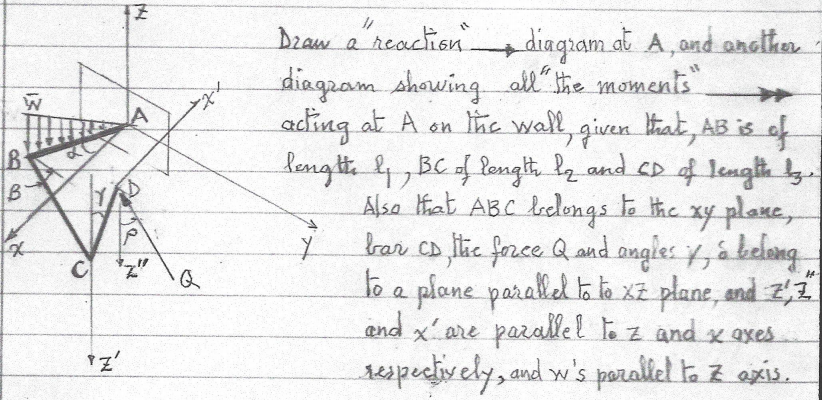 Draw a "reaction" → diagram at A, and another
diagram showing all "the moments"
acting at A on the wall, given that, AB is of
length l₁, BC of length l₂ and CD of length l₃.
Also that ABC belongs to the xy plane,
bar CD, the force Q and angles γ, belong
to a plane parallel to to xz plane, and z', z"
and x' are parallel to z and x axes
respectively, and w's parallel to z axis.
z
w
A
x'
α
B
β
γ
D
ρ
x
y
C
z"
Q
z'